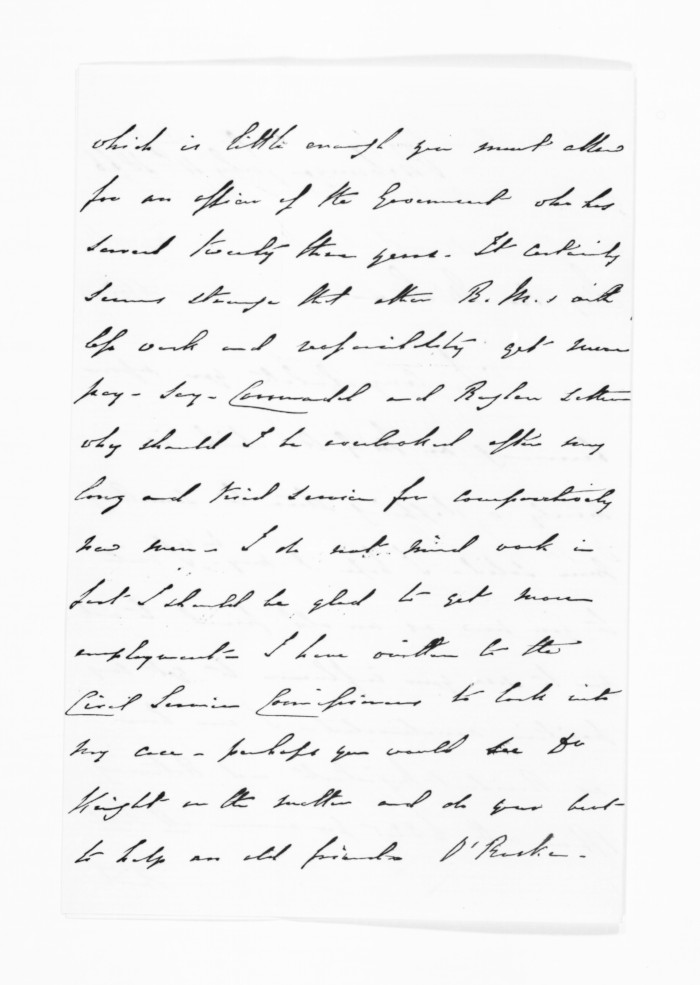 which is little enough you must allow
for an officer of the Government who has
served twenty three years. It certainly
seems strange that other R.M.s with
less work and responsibility get more
pay - say -  and
why should I be overlooked after my
long and tried service for comparatively
new men - I do not mind work in
fact I should be glad to get more
employment - I have written to the
Civil Service Commissioners to look into
my case - perhaps you would see Dr
Knight on the matter and do your best
to help an old friend